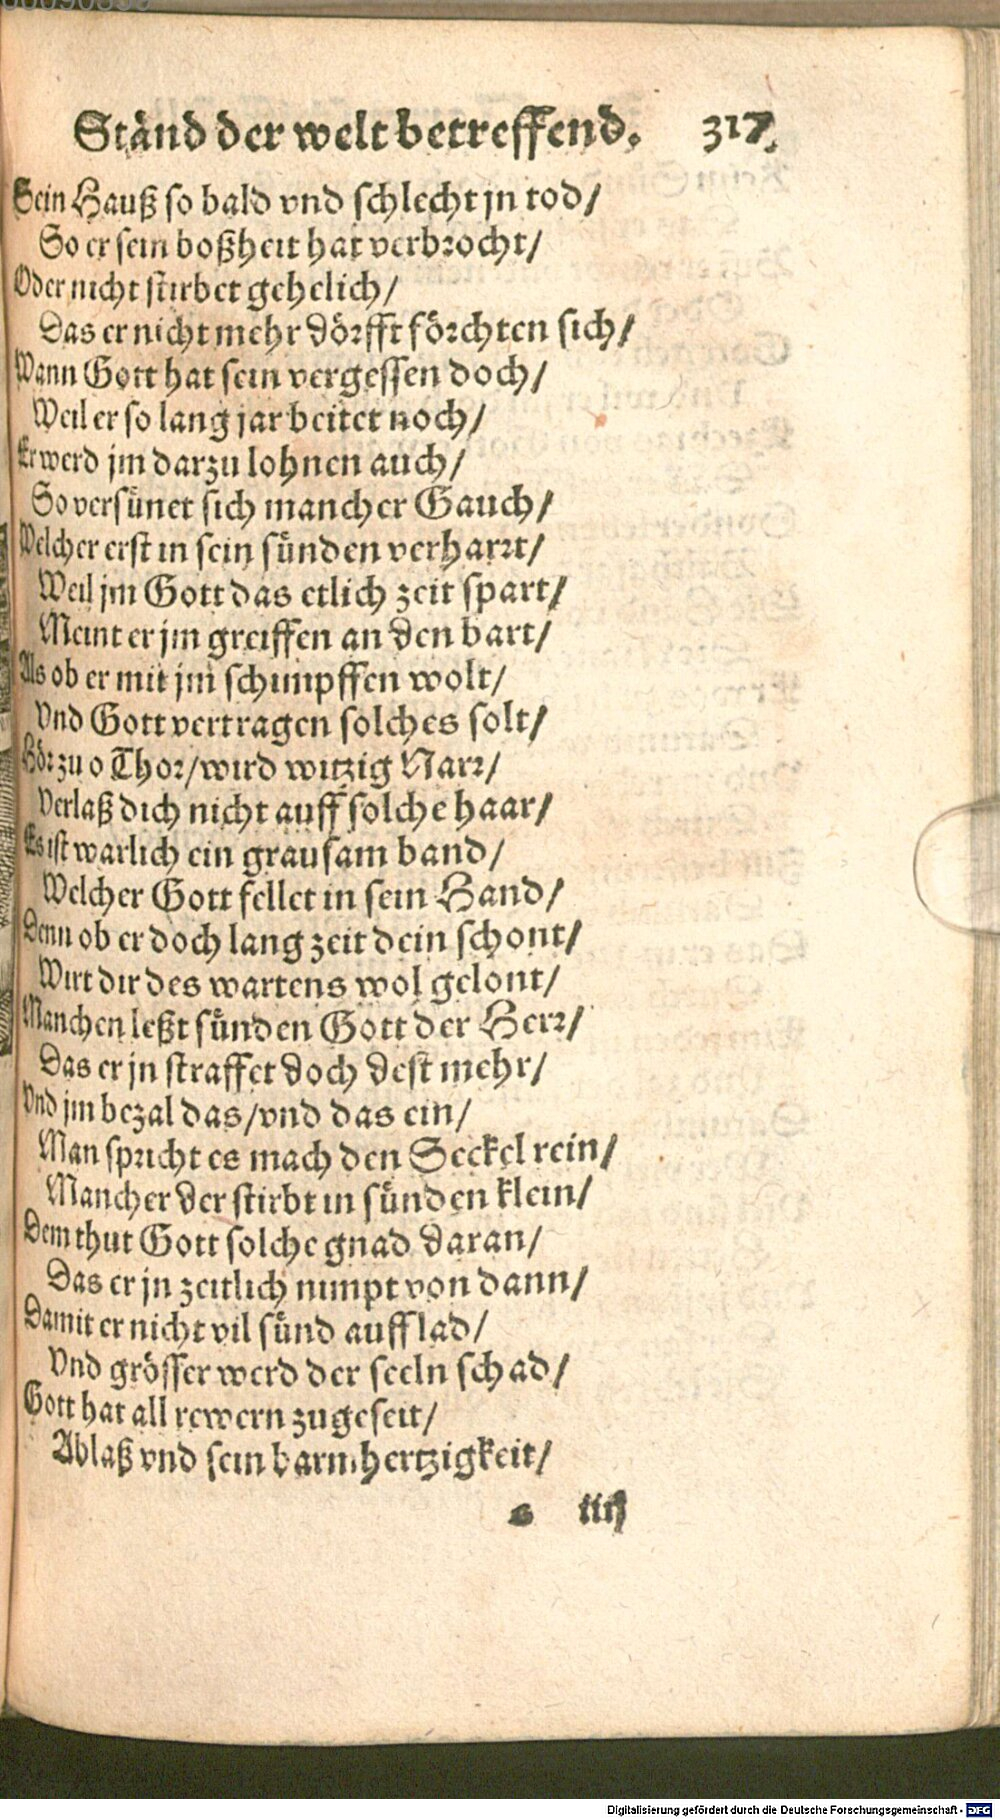 Ständ der welt betreffend. 317.
Sein Hauß so bald vnd schlecht jn tod/
So er sein boßheit hat verbrocht/
Oder nicht stirbet gehelich/
Das er nicht mehr dörfft förchten sich/
Wann Gott hat sein vergessen doch/
Weil er so lang jar beitet noch/
Er werd jm darzu lohnen auch/
So versünet sich mancher Gauch/
Welcher erst in sein sünden verharrt/
Weil jm Gott das etlich zeit spart/
Meint er jm greiffen an den bart/
Als ob er mit jm schimpffen wolt/
Vnd Gott vertragen solches solt/
Hör zu o Thor/wird witzig Narr/
Verlaß dich nicht auff solche haar/
Es ist warlich ein grausam band/
Welcher Gott fellet in sein Hand/
Denn ob er doch lang zeit dein schont/
Wirt dir des wartens wol gelont/
Manchen leßt sünden Gott der Herr/
Das er jn straffet doch dest mehr/
Vnd jm bezal das/vnd das ein/
Man spricht es mach den Seckel rein/
Mancher der stirbt in sünden klein/
Dem thut Gott solche gnad daran/
Das er jn zeitlich nimpt von dann/
Damit er nicht vil sünd auff lad/
Vnd grösser werd der seeln schad/
Gott hat all rewern zugeseit/
Ablaß vnd sein barmhertzigkeit/
iiij
Digitalisierung gefördert durch die Deutsche Forschungsgemeinschaft - DFG